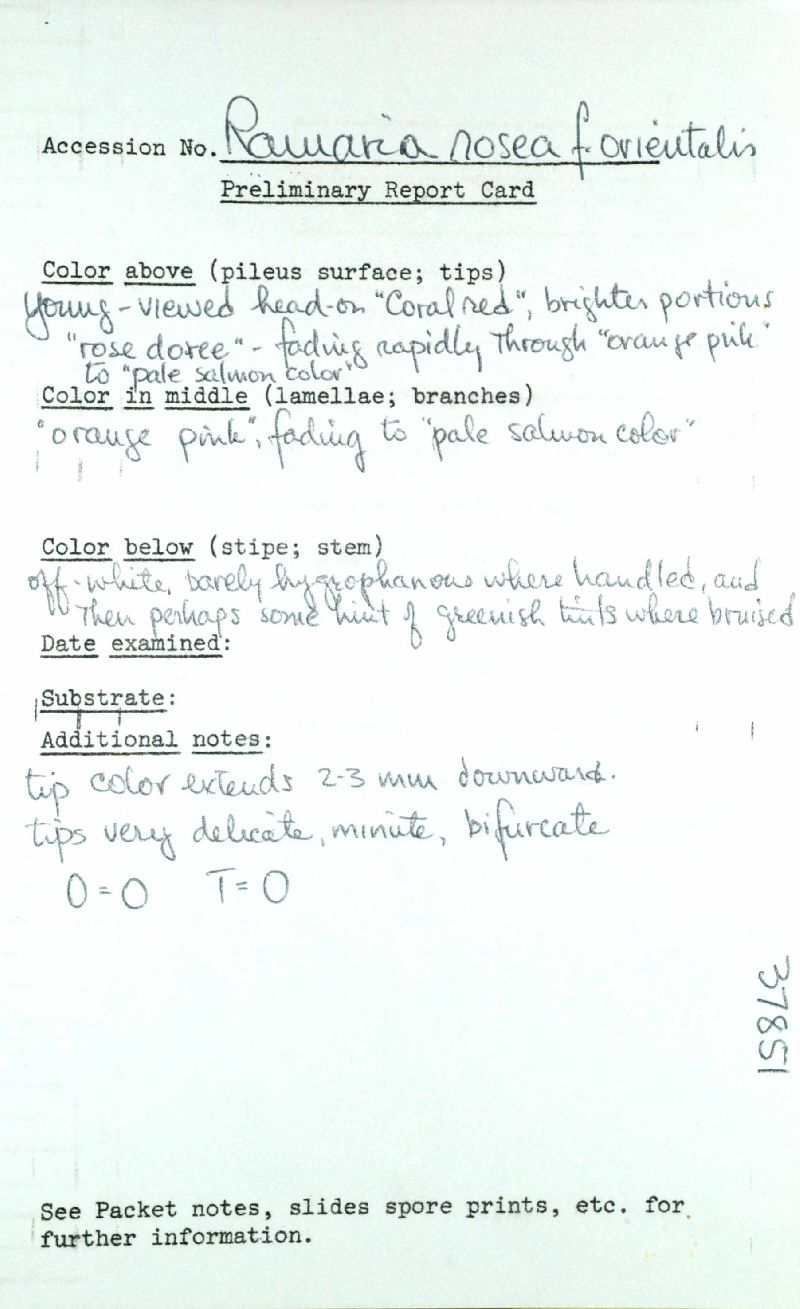 Accession No. Ramaria rosea f. orientalis
Preliminary Report Card
Color above (pileus surface; tips)
Young - viewed head-on "Coral red", brighter portions
"rose doree" - fading rapidly through "orange pink"
to "pale salmon color"
Color in middle (lamellae; branches)
"orange pink", fading to "pale salmon color"
Color below (stipe; stem)
off-white, barely hygrophanous where handled, and
then perhaps some hint of greenish tints where bruised
Date examined:
Substrate:
Additional notes:
tip color extends 2-3 mm downward.
tips very delicate, minute, bifurcate
O = O T = O
37851
See Packet notes, slides spore prints, etc. for
further information.